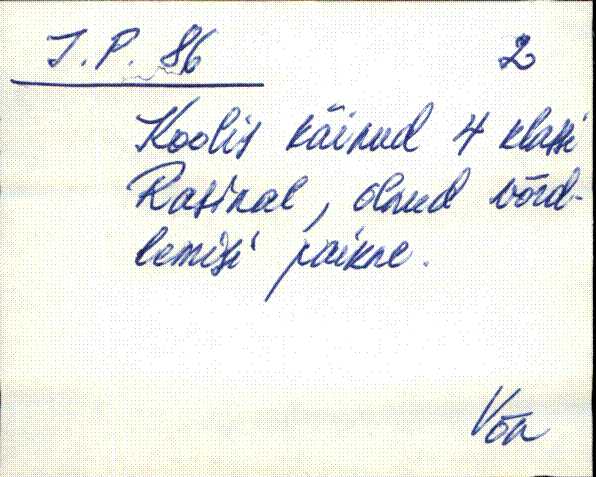 J. P. 86 2
Koolis käinud 4 klassi
Rasinal, olnud võrd-
lemisi paikne.
Võn